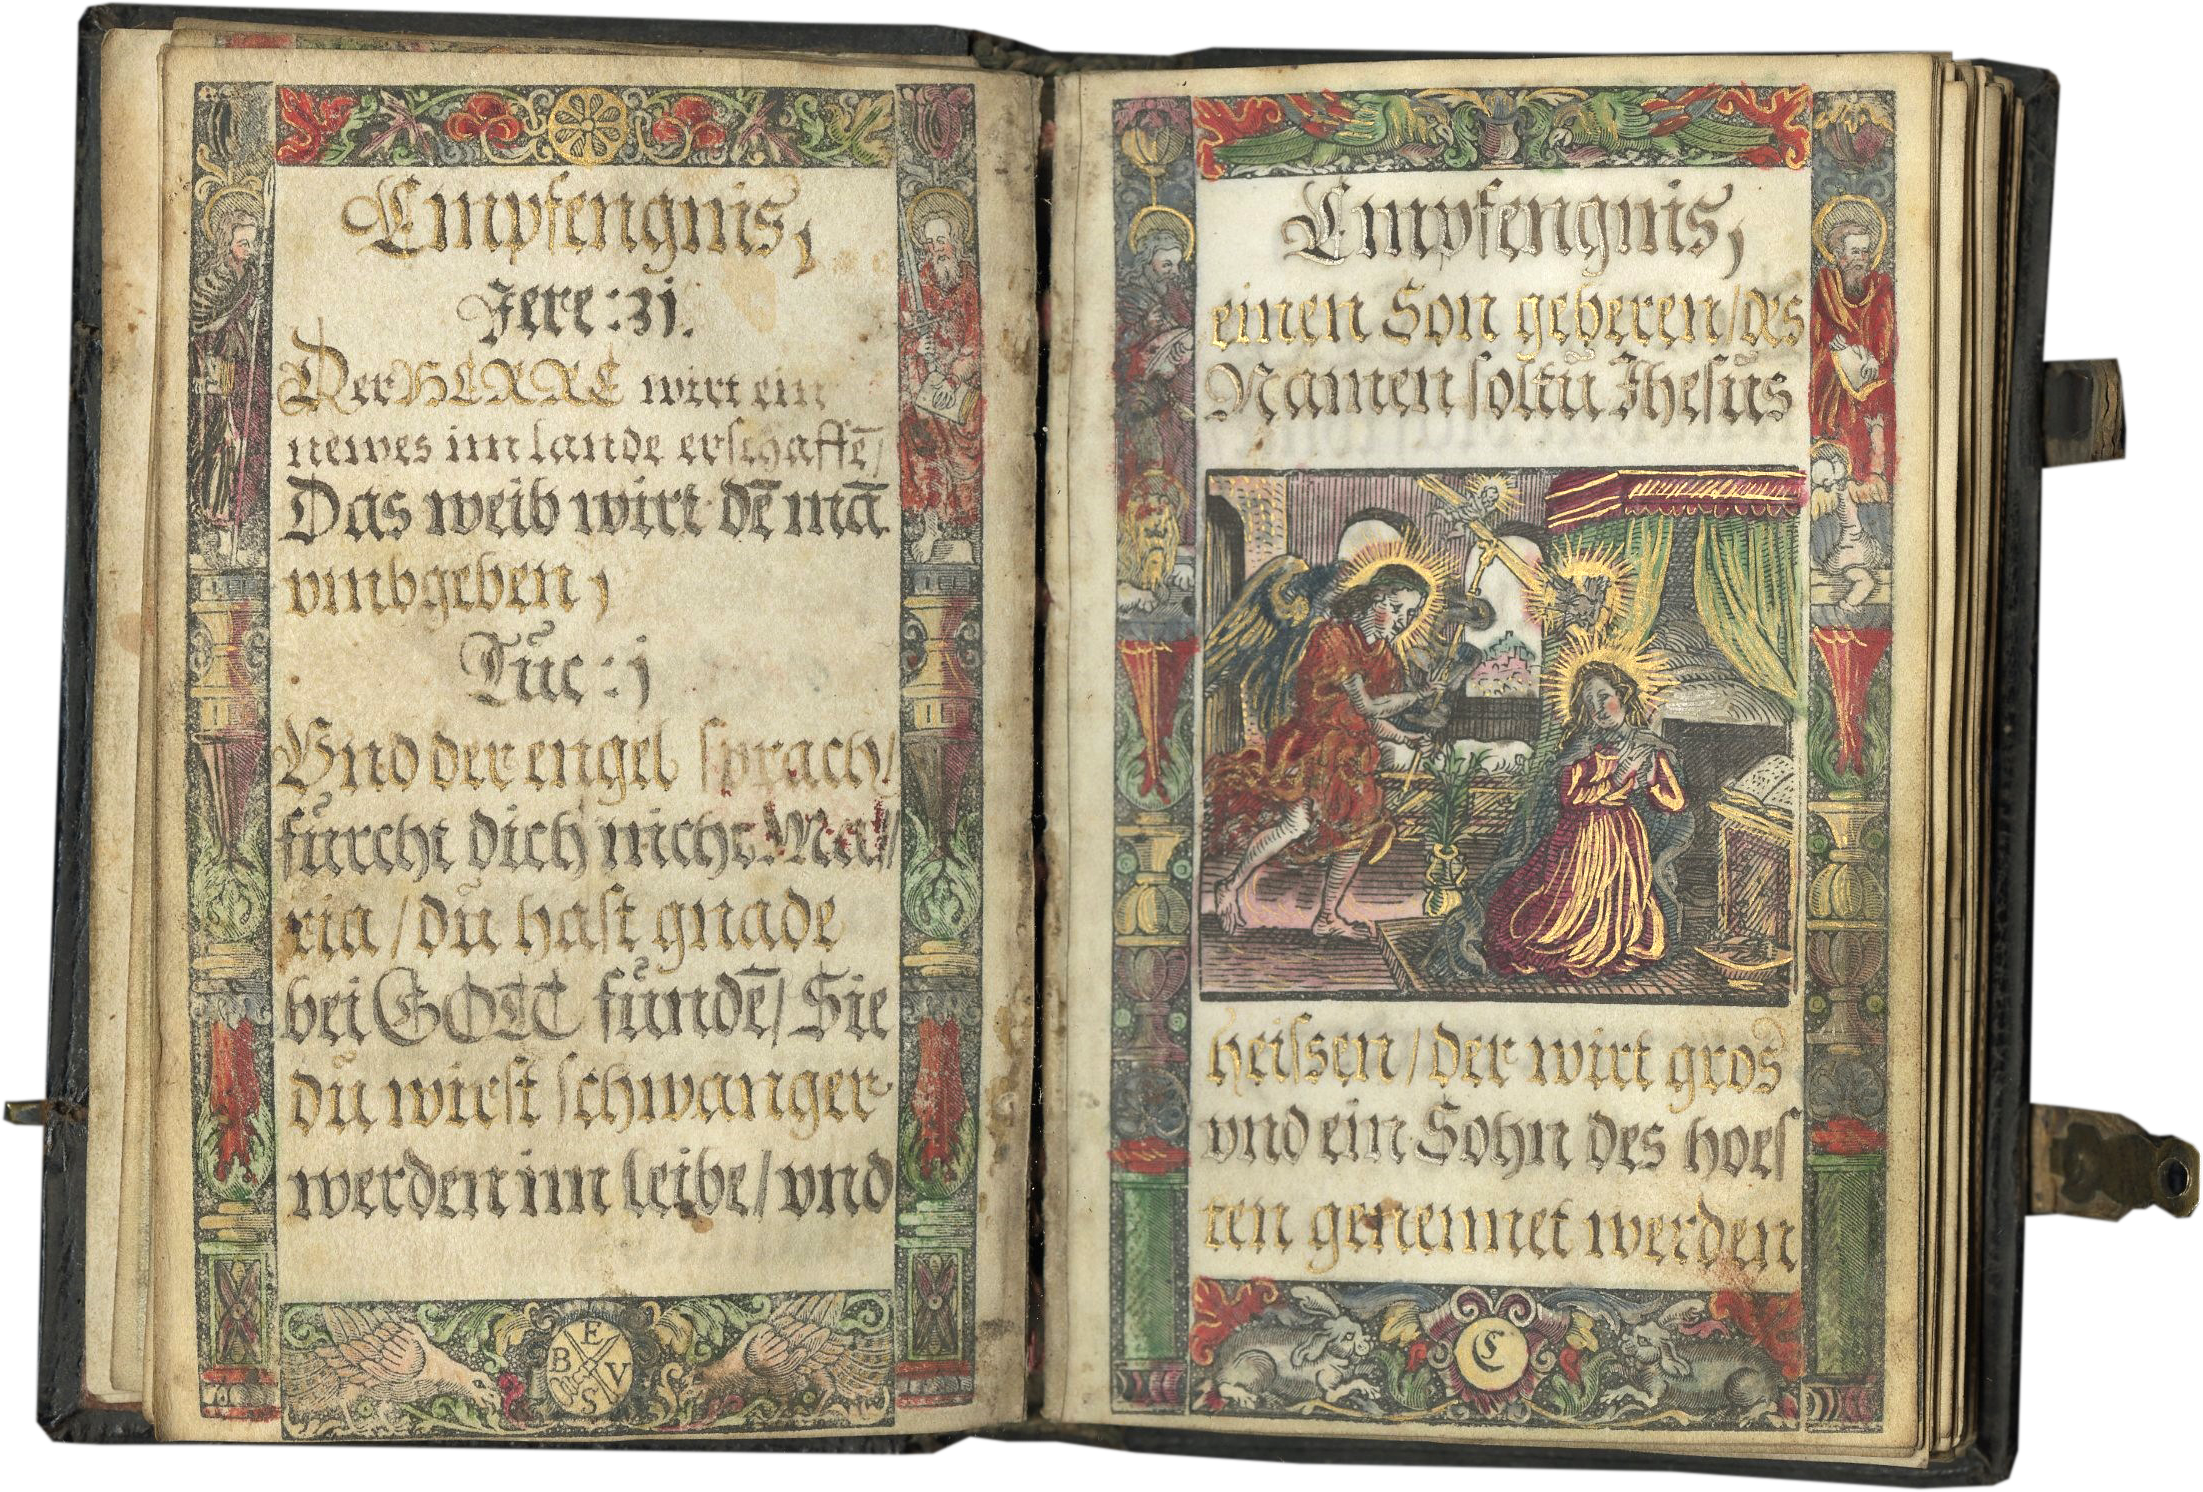 Empfengnis,
Jere: 31.
Der HERRE wirt ein
newes im lande erschaffē/
Das weib wirt dē mā
vmbgeben,
Luc: j
Vnd der engel sprach/
fürcht dich nicht Ma//
ria / dŭ hast gnade
bei GOTT fŭndē/ Sie
dŭ wirst schwanger
werden im leibe/ vnd
E
B V
S
Empfengnis,
einen Son geberen/ des
Namen soltŭ Jhesŭs
heissen/ der wirt gros
vnd ein Sohn des hoes
ten genennet werden